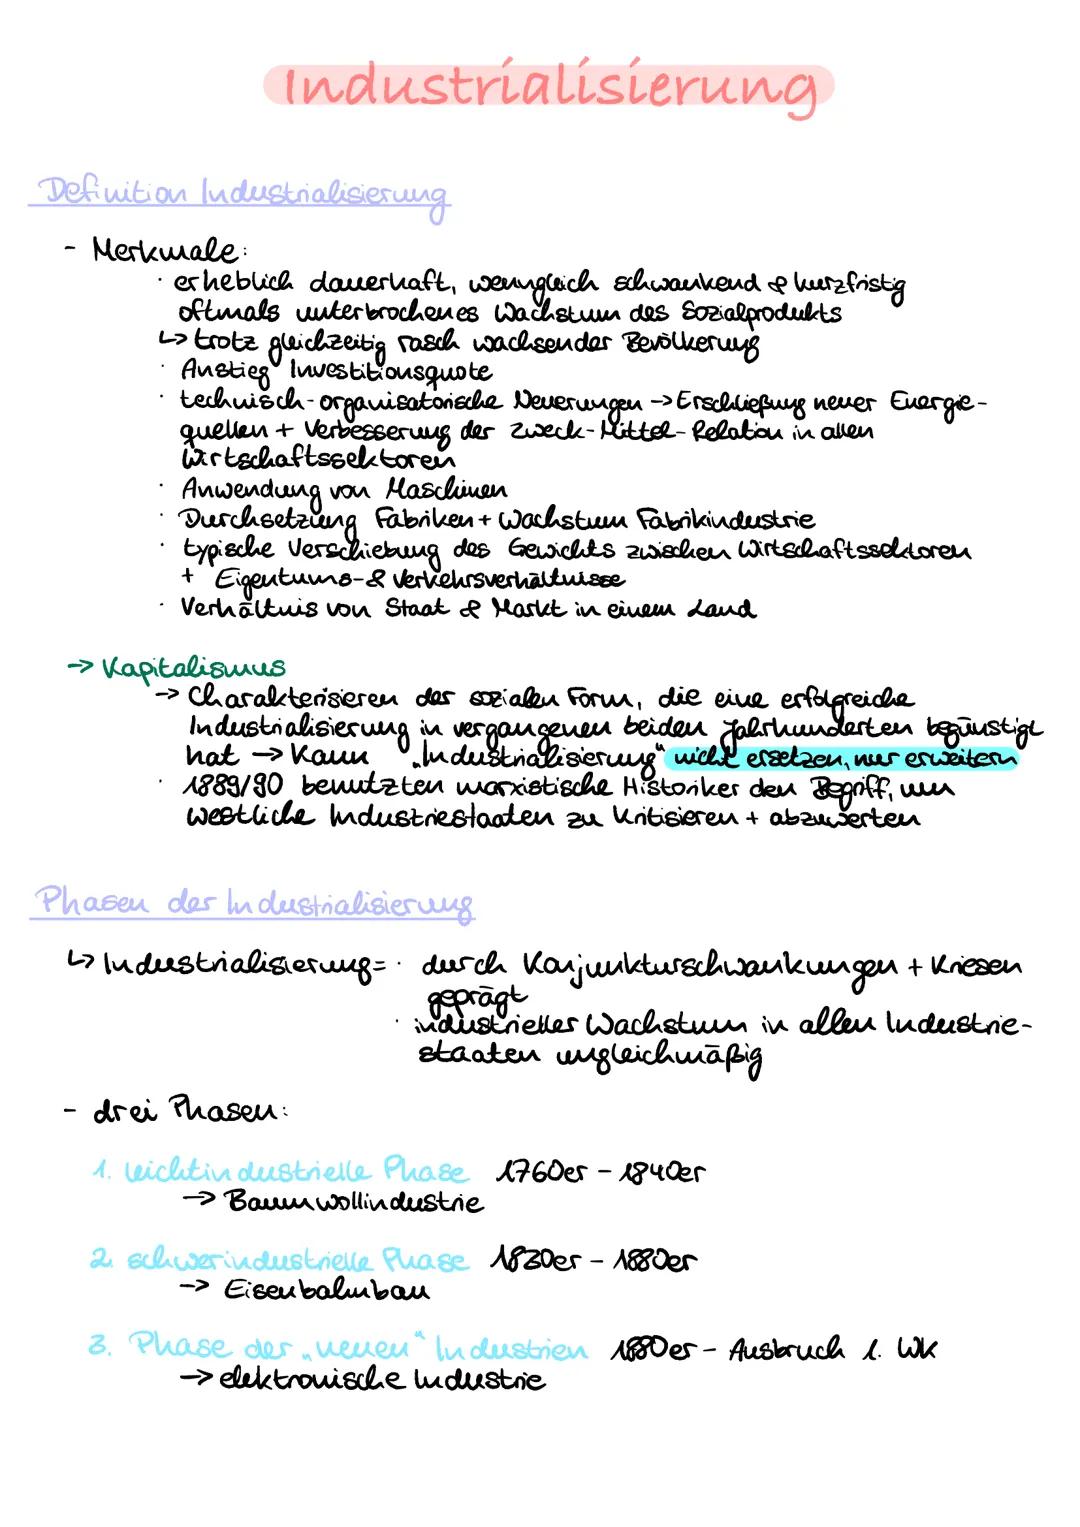 Industrialisierung
Definition Industrialisierung
- Merkmale:
· erheblich dauerhaft, wenngleich schwankend & kurzfristig
oftmals unterbrochenes Wachstum des Sozialprodukts
↳ trotz gleichzeitig rasch wachsender Bevölkerung
· Anstieg Investitionsquote
· technisch-organisatorische Neuerungen → Erschließung neuer Energie-
quellen + Verbesserung der Zweck-Mittel-Relation in allen
Wirtschaftssektoren
· Anwendung von Maschinen
· Durchsetzung Fabriken + Wachstum Fabrikindustrie
· typische Verschiebung des Gewichts zwischen Wirtschaftssektoren
+ Eigentums-& Verkehrsverhältnisse
· Verhältnis von Staat & Markt in einem Land
→ Kapitalismus
→ Charakterisieren der sozialen Form, die eine erfolgreiche
Industrialisierung in vergangenen beiden Jahrhunderten begünstigt
hat → Kann „Industrialisierung“ nicht ersetzen, nur erweitern
· 1889/90 benutzten marxistische Historiker den Begriff, um
westliche Industriestaaten zu kritisieren + abzuwerten
Phasen der Industrialisierung
↳ Industrialisierung = · durch Konjunkturschwankungen + Kriesen
geprägt
· industrieller Wachstum in allen Industrie-
staaten ungleichmäßig
- drei Phasen:
1. leichtindustrielle Phase 1760er - 1840er
→ Baumwollindustrie
2. schwerindustrielle Phase 1830er - 1880er
→ Eisenbahnbau
3. Phase der „neuen“ Industrien 1880er - Ausbruch 1. WK
→ elektronische Industrie